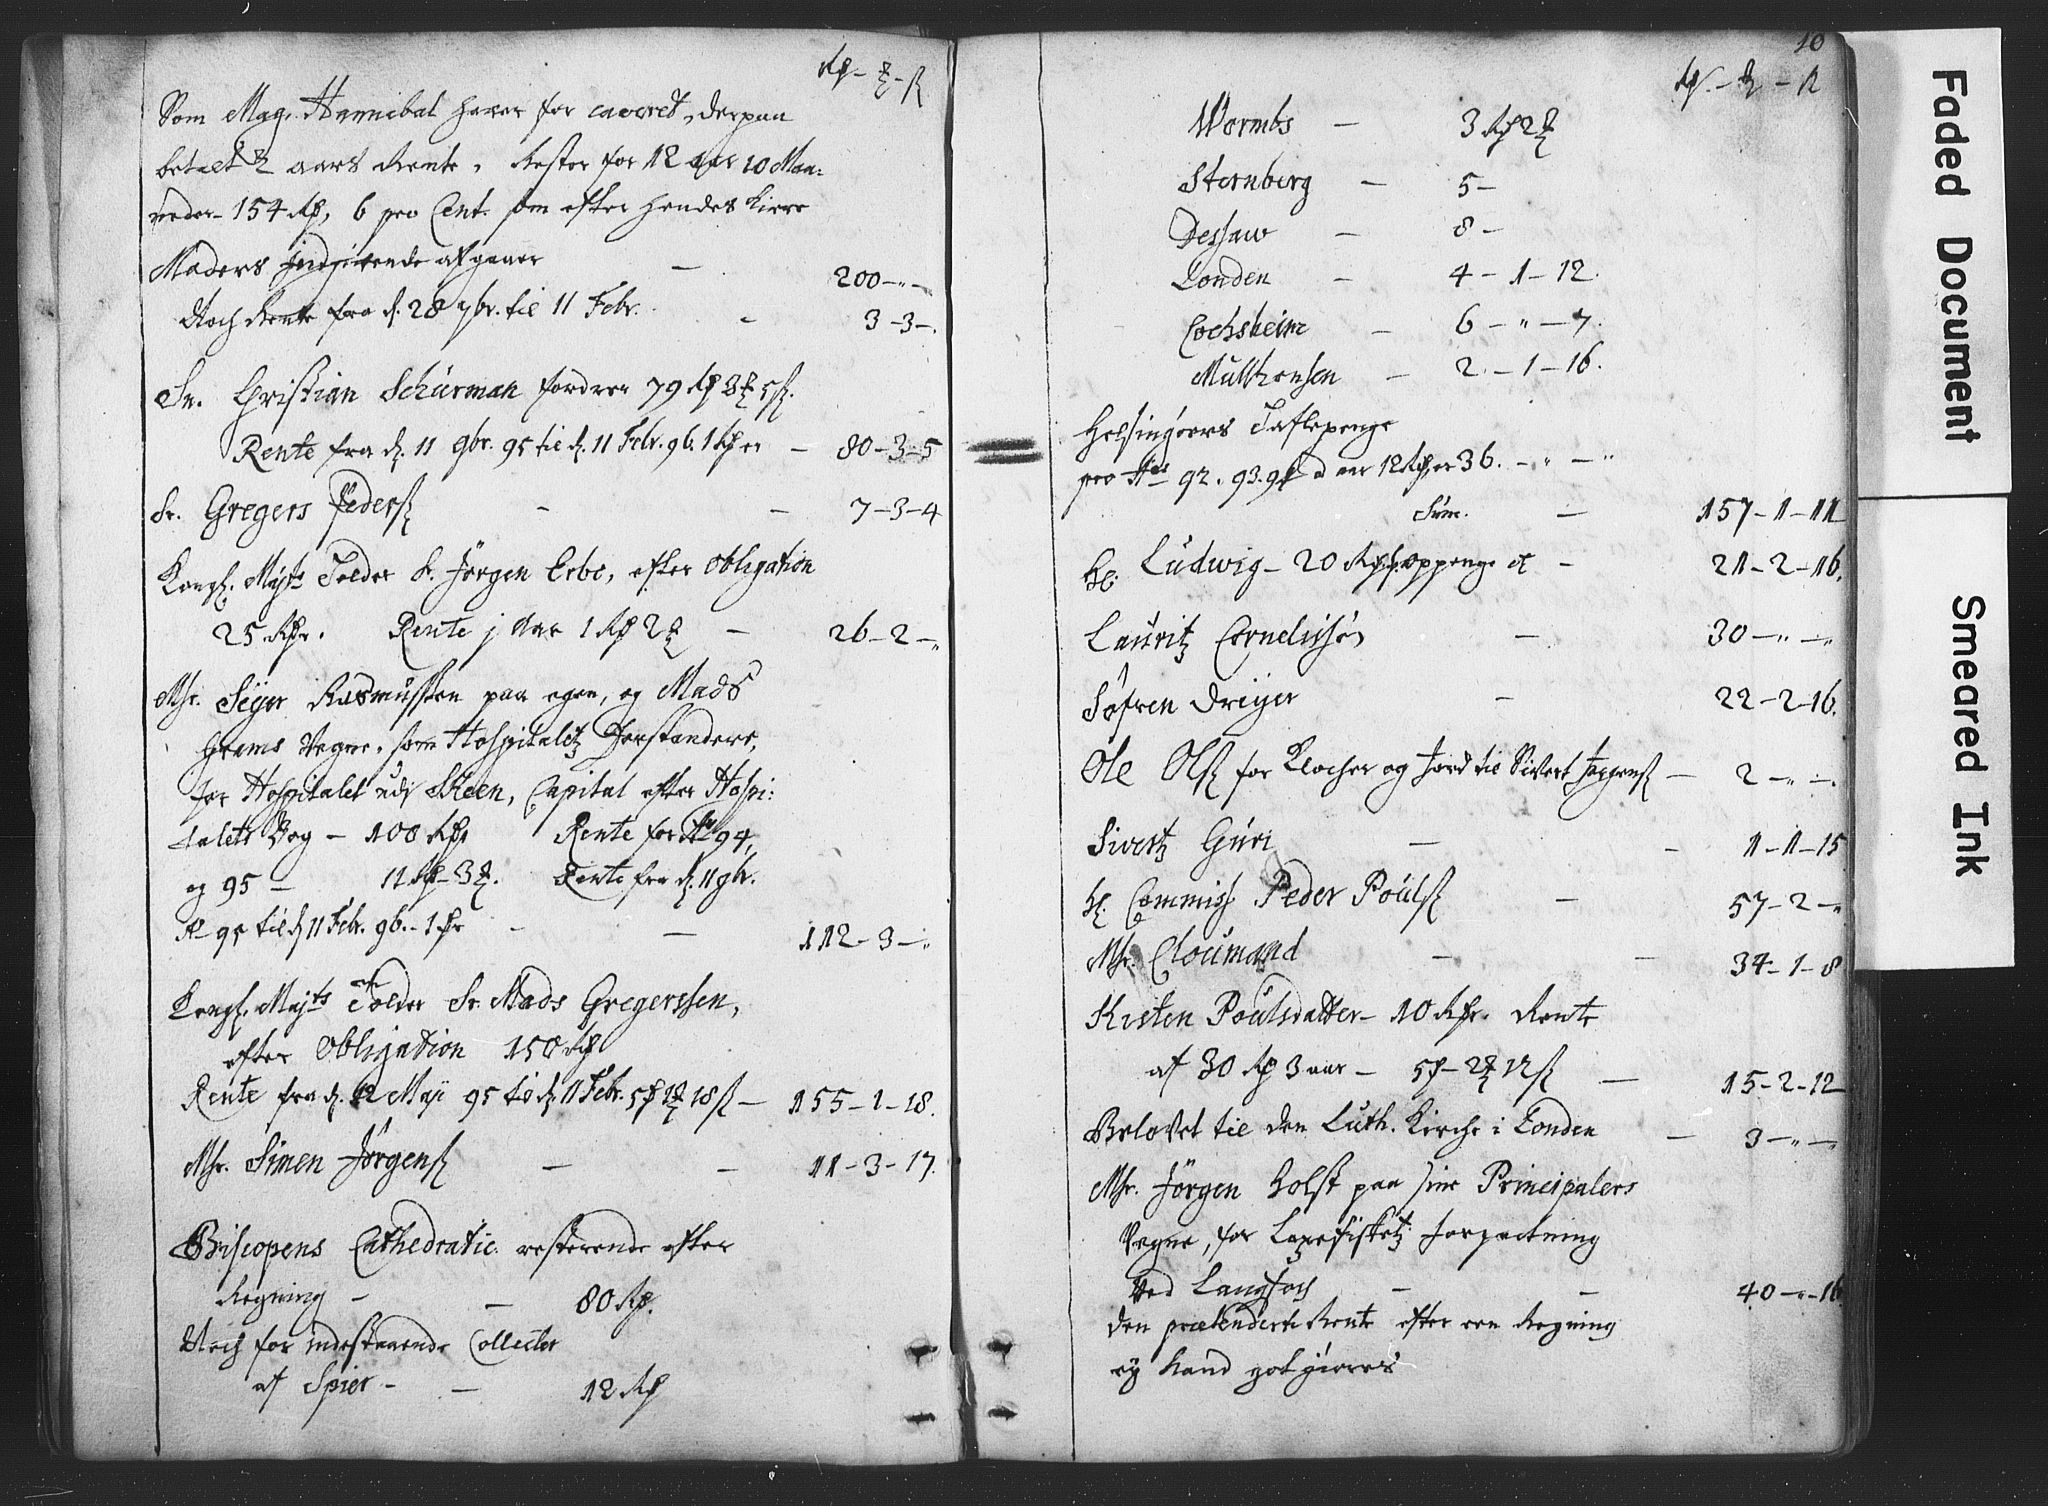 Som Mag. Hannibal haver for caveret, derpaa
betalt 2 aars Rente, Rester for 12 aar 10 Maa-
neder - 154 Rd, 6 pro Cent. som efter hendes kiere
Moders indgivende afgaaer - 200 - " -
Noch Rente fra d. 28 7br. til 11 Febr. - 3 - 3 -
Sr. Christian Schürman fordrer 79 Rd 3 5 ß.
Rente fra d. 11 9br. 95 til d. 11 Febr. 96. 1 Rd er - 80 - 3 - 5
Sr. Gregers Pederß - - 7 - 3 - 4
Kongl. Mayts Tolder Sr. Jörgen Erbo, efter obligation
25 Rdr. Rente j Aar 1 Rd 2 - 26 - 2 - "
Msr. Seÿer Rasmussen paa egen, og Mads
Vegne, som Hospitaletz Forstandere,
for Hospitalet udj Skeen, Capital efter Hospi:
talets Bog - 100 Rdr Rente for Ao 94,
og 95 - 11 Rd - 3. Rente fra d. 11 9br.
A 95 til d 11 Febr. 96. - 1 Rdr - - 112 - 3 - "
Kongl. Mayts Tolder Sr. Mads Gregerssen,
efter Obligation 150 Rd
Rente fra d. 12 Maji 95 til d. 11 Febr. 5 1 18 ß - 155 - 1 - 18.
Msr. Simen Jörgenß - - 11 - 3 - 17.
Biscopens Cathedratic. resterende efter
Regning - - 80 Rd.
Noch for indestaaende Collecter
af Spier - - 12 Rd
10
Wormbs - 3 Rd 2
Sternberg - 5 -
Dessaw - 8 -
Londen - 4 - 1 - 12.
Cochsheim - 6 - " - 7.
Mülhensen - 2 - 1 - 16.
Helsingöers Taflepenge
pro Ao 92. 93. 94 a aar 12 Rd er 36. - " - "
Süm. - 157 - 1 - 11
Hl. Ludwig - 20 Rd - 21 - 2 - 16.
Lauritz Cornelisön - 30 - " - "
Söfren Dreÿer - 22 - 2 - 16.
Ole Olß for Klocher og Jord til Sivert Jörgenß - 2 - " - .
Sivertz Güri - - 1 - 1 - 15
Hl. Commiss. Peder Poülß - 57 - 2 - "
Msr. Cloümand - - 34 - 1 - 8
Kisten Poülsdatter - 10 Rdr. Rente
af 30 Rd 3 aar - 5 - 2 12 ß - 15 - 2 - 12
Belovet til den Luth. Kirche i Londen - 3 - " - "
Msr. Jörgen Holst paa sine Principalers
Vegne, for Laxefisketz Forpactning
Ved Langfoch - - 40 - " - 16
Den prætenderte Rente efter een Regning
eÿ kand got giöres
Faded Document
Smeared Ink